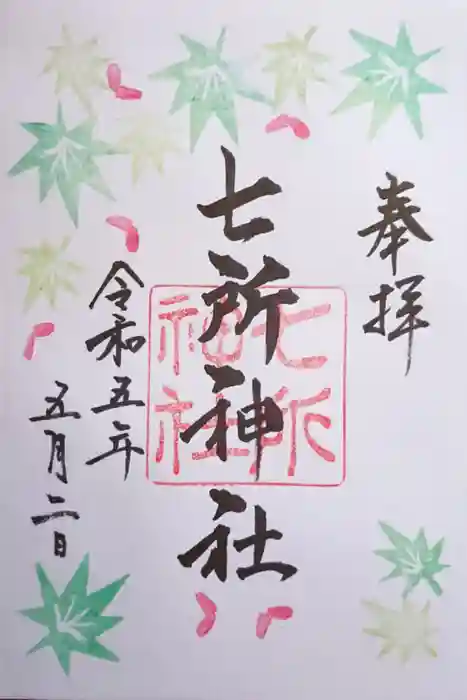 奉拝
七所神社
七所神社
令和五年
五月二日